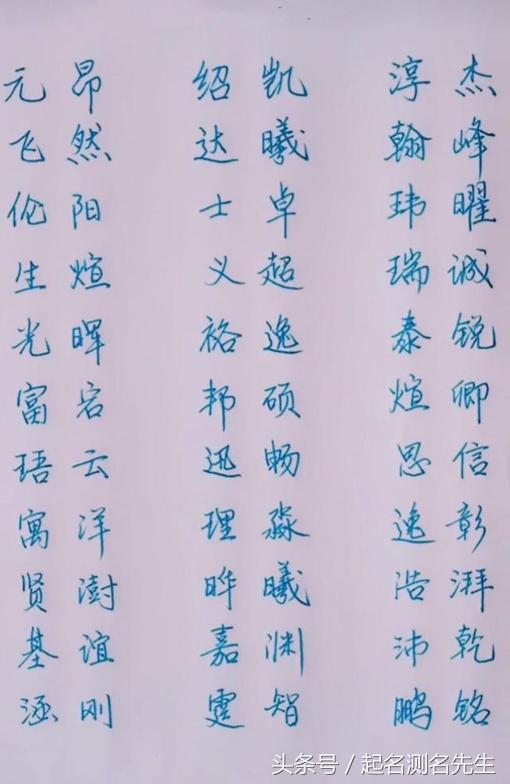 元昂 绍凯 淳杰
飞然 达曦 翰峰
伦阳 士卓 玮曜
生煊 义超 瑞诚
光晖 裕逸 泰锐
富容 邦硕 煊卿
珸云 迅畅 思信
寓洋 理淼 逸彰
贤澍 晔曦 浩湃
基谊 嘉渊 沛乾
涵刚 霆智 鹏铭
头条号／起名测名先生